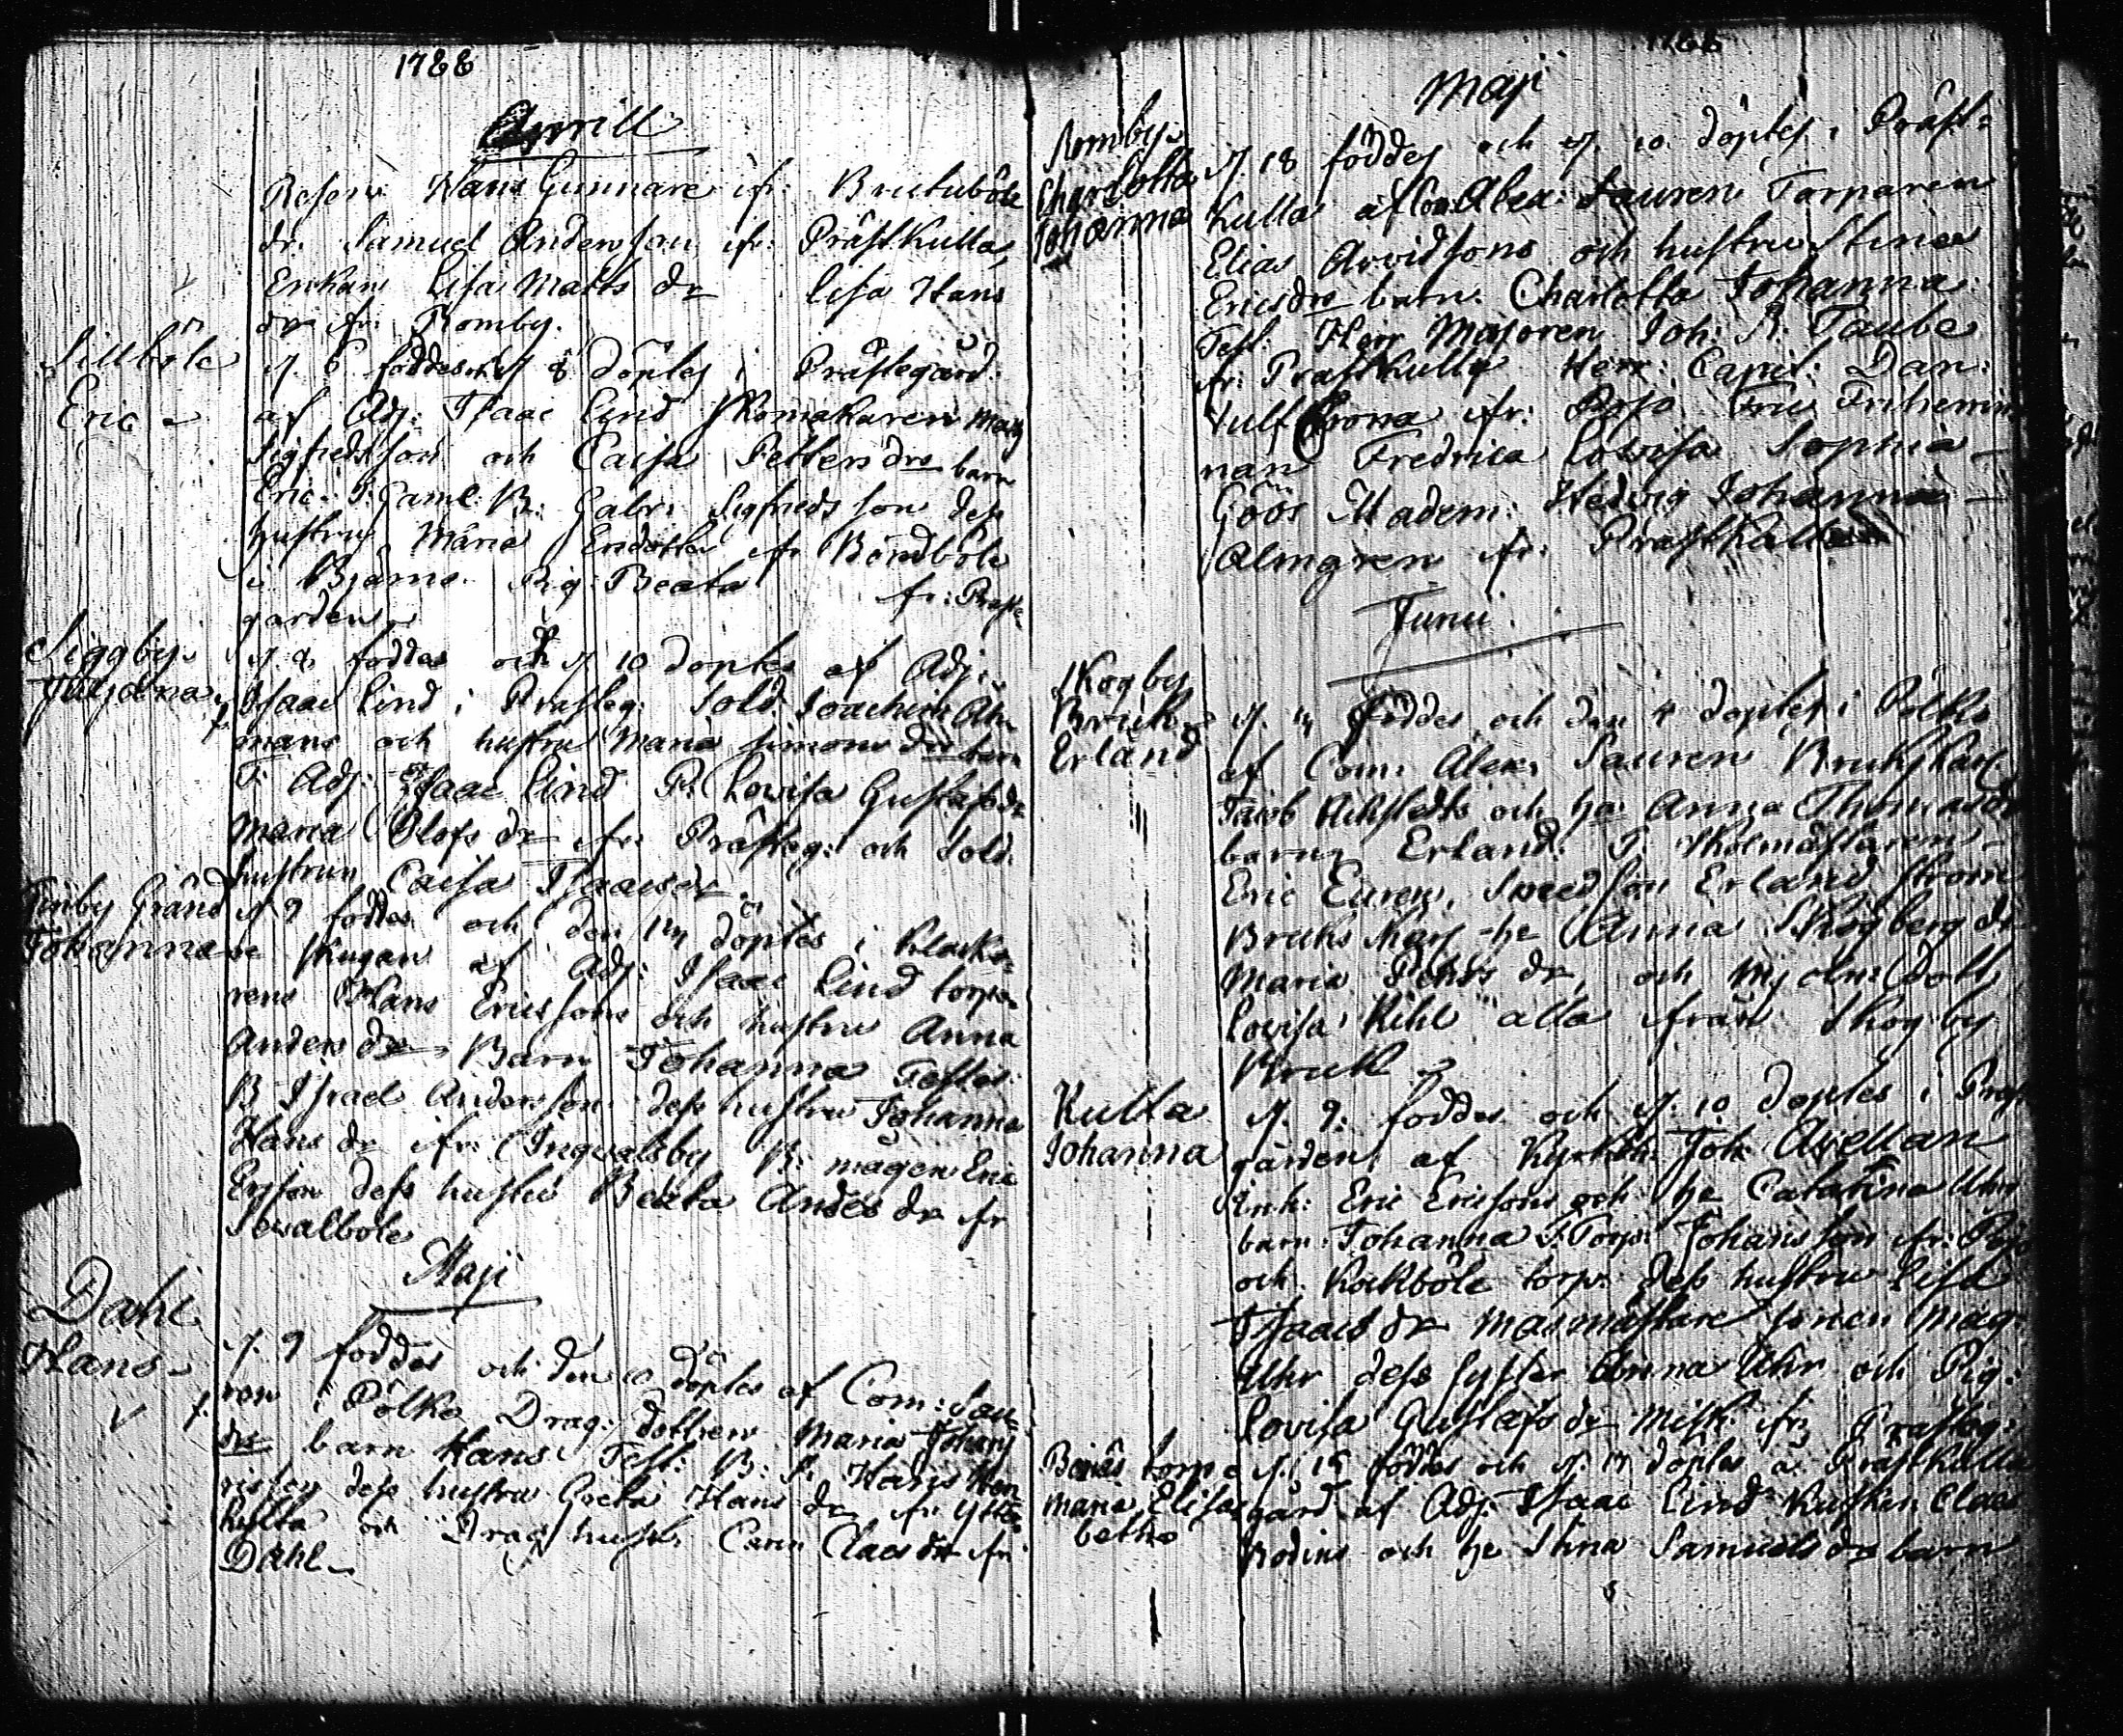 1788
Aprill
Hans Gunnars ifr: Brutuböle
dr. Samuel Anderson ifr: Prästkulla,
Enkan Lisa Matts dr Lisa Hans
dr ifr: Romby.
Sillböle
Eric
d. 6 föddes och d 8 döptes i Prästegård:
af Adj: Isaac Lind Skomakaren
Sigfredsson och Caisa Petters drs barn
Eric. T: Gaml: B: Gabr: Sigfreds son dess
hustru Maria ifr Böndböle
i Bjärnå Pig: Beata fr: Präste
garden
Siggby
d. 8 föddes och d 10 döptes af Adj:
Isaac Lind i Prästeg: Sold: Joachim
mans och hustru Maria Simons drs barn
T: Adj: Isaac Lind P. Lowisa Gustafs dr
Maria Olofs dr ifr: Prästeg: och Sold:
hustrun Caisa Isaacs dr
Finby Gränd
Johanna
d 9 föddes och den 14 döptes i Klocka-
re stugan af Adj: Isaac Lind torpa-
rens Hans Ericssons och hustru Anna
Anders drs Barn Johanna Testes
B Israel Andersson dess hustru Johanna
Hans dr ifr: Ingvalsby B: mågen Eric
Ersson dess hustru Beata Anders dr ifr
Sevalbole
Maji
Dahl
Hans
d. 9 föddes och den 10 döptes af Com: Lau-
ren i Pölkä Drag: dottren Maria Johans
drs barn Hans Test: B: S. Hans Hen
dess hustru Greta Hans dr ifr: Ytter
kulla och Drag: hust: Carin Claes dr ifr
Dahl
1788
Maji
Romby
Charlotta
Johanna
d. 18 föddes och d. 20 döptes i Präst-
kulla af Com: Alex: Lauren Torparen
Elias Arvidsons och hustru Stina
Ericsdrs barn. Charlotta Johanna
Test: Herr Majoren Joh: R: Taube
fr: Prästkulla Herr: Capit: Dan:
Wulfcrona ifr: Pojo Fru Friherrin-
nan Fredrica Lowisa Sophia
Göös Madem: Hedvig Johanna
Almgren ifr: Prästkulla
Junii
Skogby
Bruk
Erland
d. föddes och den 4 döptes i Pölkä
af Com: Alex: Lauren Bruks karl
Jacob och he Anna Thomasdr
barn Erland. T: Skolmästaren
Eric Euren, Smedson Erland Ström
Bruks Karls he Anna Skogberg dr
Maria Pehrs dr, och Mjöln: Dott
Lovisa Kihl alla ifrån Skogby
Bruk
Kulla
Johanna
d. 9. föddes och d. 10 döptes i Präst
gården af Kyrkoh: Joh: Avellan
Inh: Eric Ericsons och he Catarina Uhr
barn Johanna T. Torp: Johansson ifr: Pojo
och Kockböle torp: dess hustru Lisa
Isaacs dr Masmästare sonen Mag:
Uhr dess syster Anna Uhr och Pig:
Lovisa Gustafs dr ifr: Prästeg:
torp
Maria Elisa-
beth
d. 15 föddes och d. 17 döptes å Prästkulla
gård af Adj: Isaac Lind Kusken Claes
Rodins och he Stina Samuels drs barn